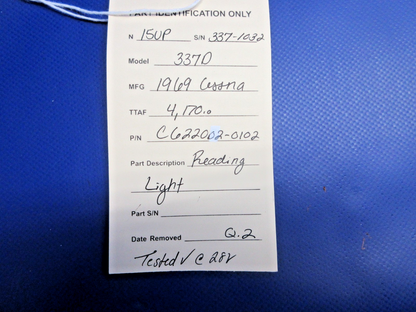 PART IDENTIFICATION ONLY
N 15UP S/N 337-1032
Model 337D
MFG 1969 Cessna
TTAF 4,170.0
P/N C622002-0102
Part Description Reading
Light
Part S/N
Date Removed Q.2
Tested √ @ 28V